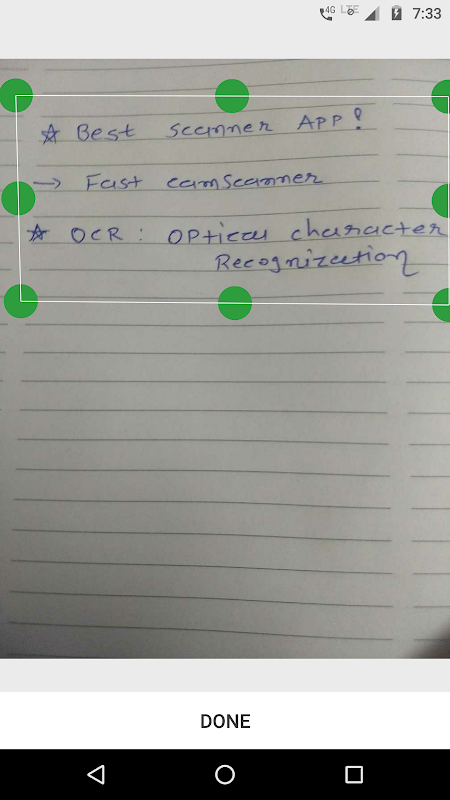 4G LTE 7:33
☆ Best scanner App!
→ Fast camscanner
☆ OCR : OPtical character
Recognization
DONE